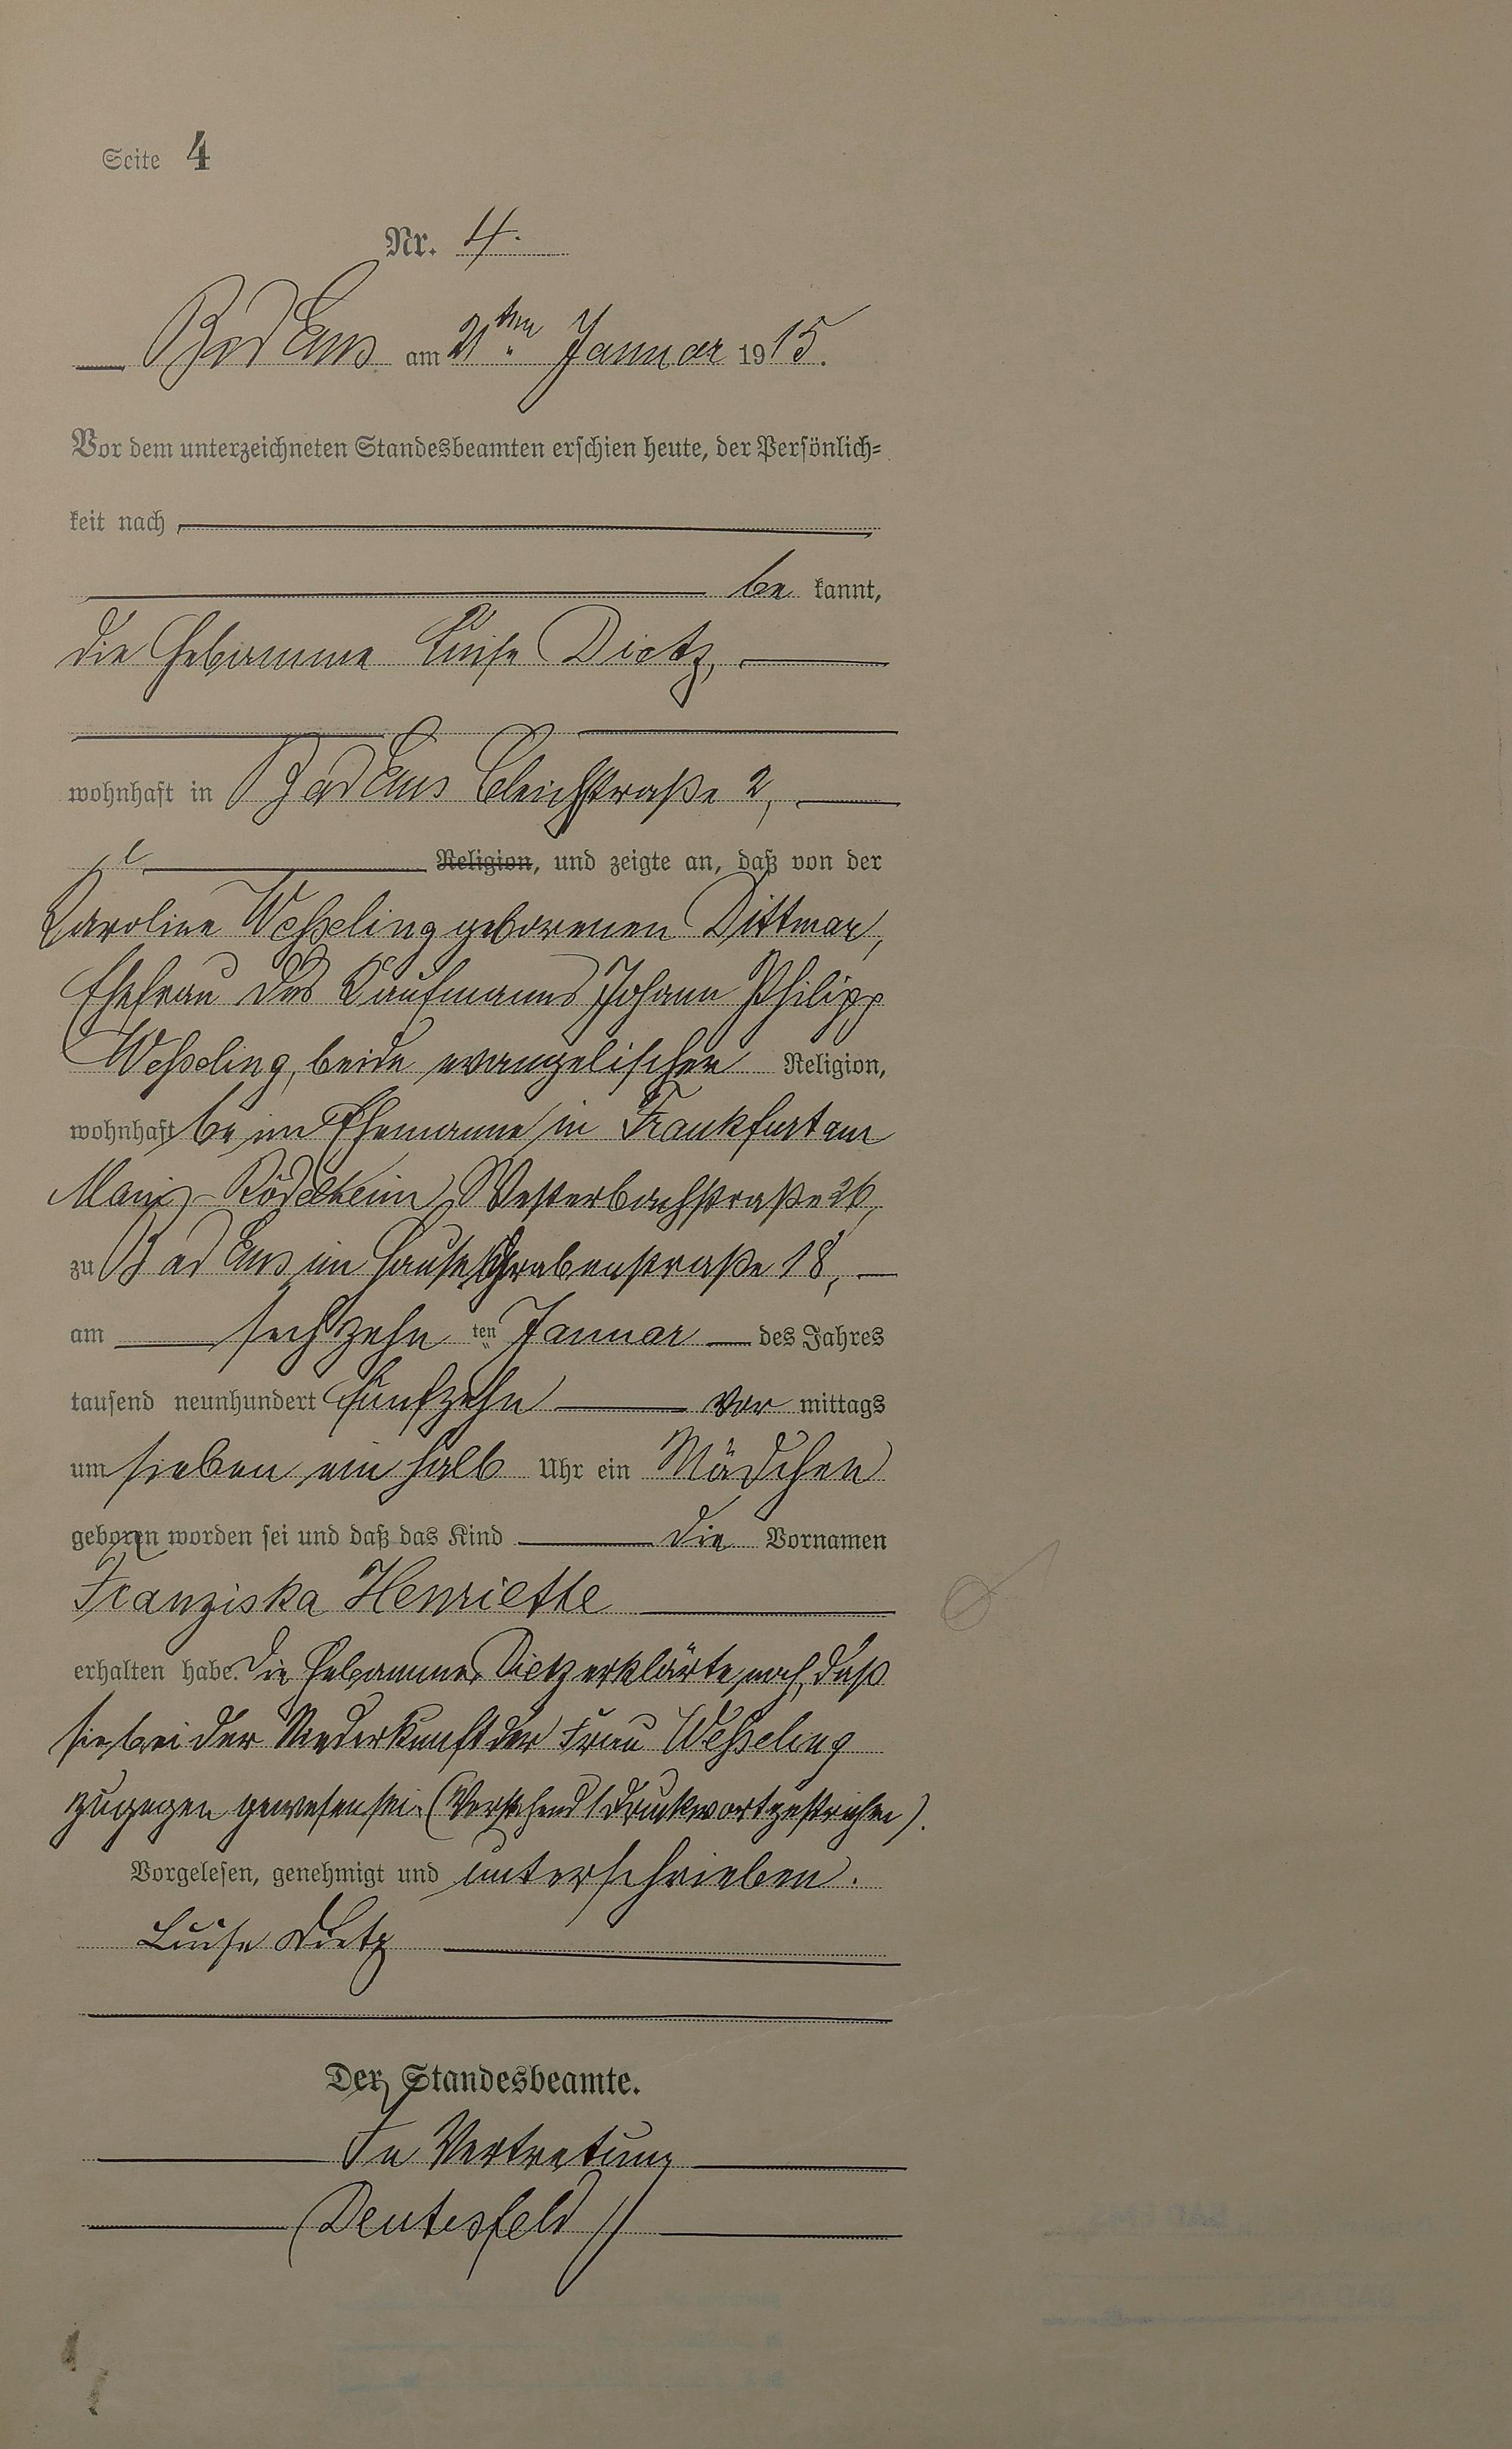 Seite 4
Nr. 4.
Bad Ems am 21ten Januar 1915.
Vor dem unterzeichneten Standesbeamten erschien heute, der Persönlich-
keit nach
be kannt,
die Hebamme Luise Dietz,
wohnhaft in Bad Ems Bleichstraße 2,
Religion, und zeigte an, daß von der
Karoline Weßeling geborenen Dittmar,
Ehefrau des Kaufmanns Johann Philipp
Weßeling, beide evangelischer Religion,
wohnhaft beim Ehemanne in Frankfurt am
Main-Rödelheim, Westerbachstraße 26,
zu Bad Ems im Hause Grabenstraße 18,
am sechzehn ten Januar des Jahres
tausend neunhundert fünfzehn vor mittags
um sieben ein halb Uhr ein Mädchen
geboren worden sei und daß das Kind die Vornamen
Franziska Henriette
erhalten habe. Die Hebamme Dietz erklärte noch, daß
sie bei der Niederkunft der Frau Weßeling
zugegen gewesen sei. (Vorstehend 1 Druckwort gestrichen).
Vorgelesen, genehmigt und unterschrieben.
Luise Dietz
Der Standesbeamte.
In Vertretung
Deutesfeld